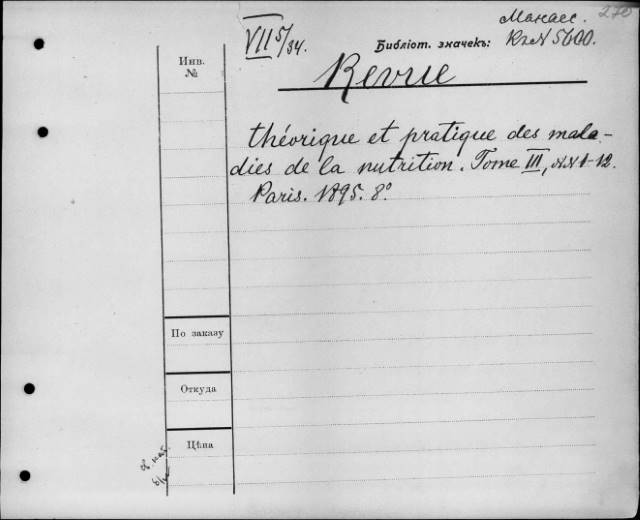 Манасс. 270
VII 5/34.
Библіот. значекъ: Кг№ 5600.
Инв.
№
Revue
théorique et pratique des mala-
dies de la nutrition. Tome III, №№ 1-12.
Paris. 1895. 8°
По заказу
Откуда
Цѣна